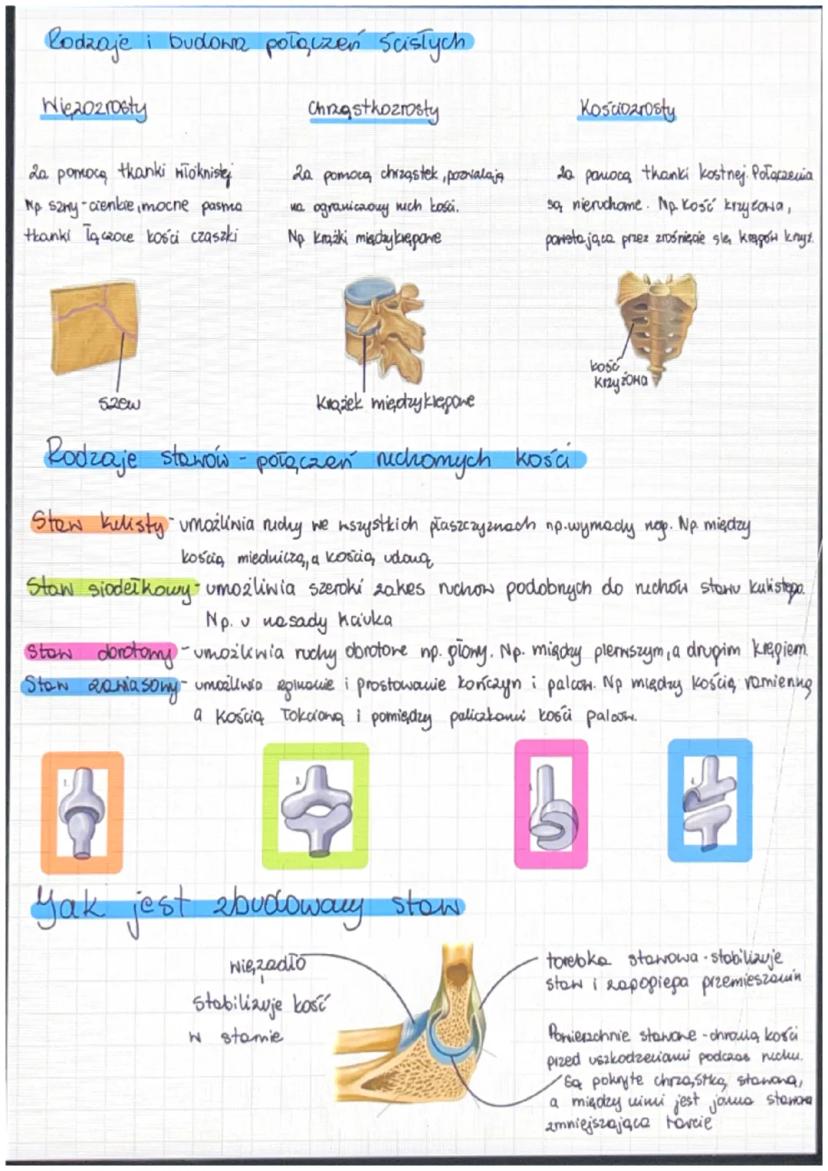 Rodzaje i budowa połączeń ścisłych
Więzozrosty
Chrząstkozrosty
Kościozrosty
Za pomocą tkanki włóknistej
Np szwy - cienkie, mocne pasma
tkanki łączące kości czaszki
Za pomocą chrząstek, pozwalają
na ograniczony ruch kości.
Np krążki międzykręgowe
Za pomocą tkanki kostnej. Połączenia
są nieruchome. Np. Kość krzyżowa,
powstająca przez zrośnięcie się kręgów krzyż.
szew
Krążek międzykręgowe
kość
krzyżowa
Rodzaje stawów - połączeń ruchomych kości
Staw kulisty - umożliwia ruchy we wszystkich płaszczyznach np. wymachy nóg. Np. między
kością miedniczą, a kością udową
Staw siodełkowy - umożliwia szeroki zakes ruchow podobnych do ruchów stawu kulistego.
Np. u nasady kciuka
staw obrotowy - umożliwia ruchy obrotowe np. głowy. Np. między pierwszym, a drugim kręgiem
Staw zawiasowy - umożliwia zginanie i prostowanie kończyn i palców. Np między kością ramienną
a kością łokciową i pomiędzy paliczkami kości palców.
1.
2.
3.
4.
Jak jest zbudowany staw
więzadło
stabilizuje kość
w stawie
torebka stawowa - stabilizuje
staw i zapobiega przemieszczaniu
Powierzchnie stawowe - chronią kości
przed uszkodzeniami podczas ruchu.
Są pokryte chrząstką stawową,
a między nimi jest jama stawowa
zmniejszająca tarcie